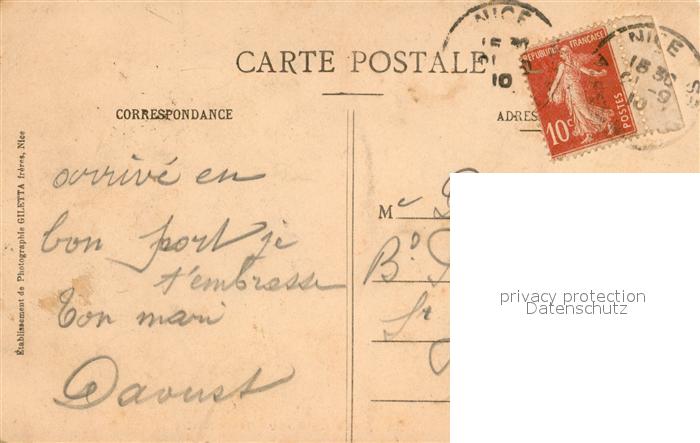 CARTE POSTALE
NICE
15 30
10
REPUBLIQUE FRANÇAISE
10c
POSTES
NICE
15 30
-9
10
CORRESPONDANCE
ADRES
Établissement de Photographie GILETTA frères, Nice
arrivé en
bon port je
t'embrasse
Ton mari
Davoust
Me
Bd
St
privacy protection
Datenschutz